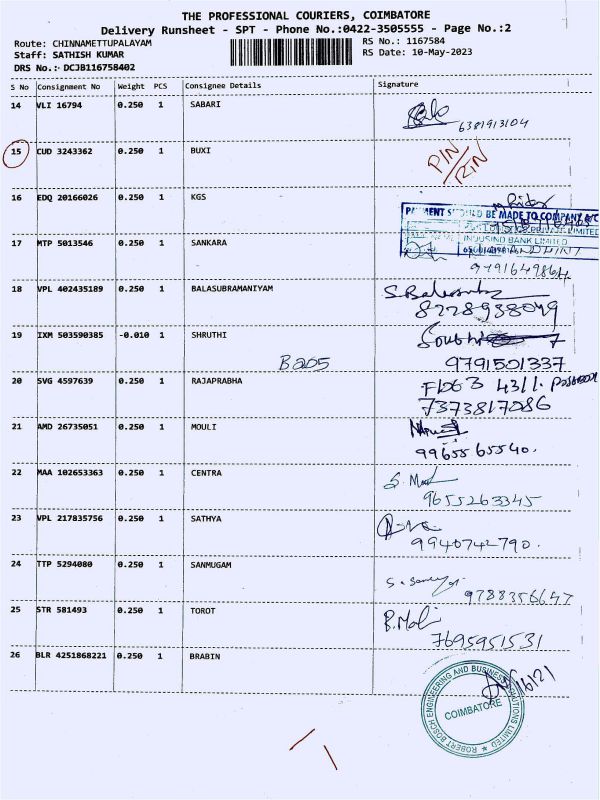 THE PROFESSIONAL COURIERS, COIMBATORE
Delivery Runsheet - SPT - Phone No.:0422-3505555 - Page No.:2
Route: CHINNAMETTUPALAYAM
RS No.: 1167584
Staff: SATHISH KUMAR
RS Date: 10-May-2023
DRS No.:- DCJB116758402
S No Consignment No Weight PCS Consignee Details Signature
14 VLI 16794 0.250 1 SABARI
6381913104
15 CUD 3243362 0.250 1 BUXI
PIN/RIN
16 EDQ 20166026 0.250 1 KGS
BE MADE TO COMPANY A/C
LIMITED
17 MTP 5013546 0.250 1 SANKARA
INDUSIND BANK LIMITED
9791649864
18 VPL 402435189 0.250 1 BALASUBRAMANIYAM
8228938049
19 IXM 503590385 -0.010 1 SHRUTHI
9791501337
20 SVG 4597639 0.250 1 RAJAPRABHA
4311.
7373817086
21 AMD 26735051 0.250 1 MOULI
9965565540.
22 MAA 102653363 0.250 1 CENTRA
9655263345
23 VPL 217835756 0.250 1 SATHYA
9940742790.
24 TTP 5294080 0.250 1 SANMUGAM
9788356647
25 STR 581493 0.250 1 TOROT
7695951531
26 BLR 4251868221 0.250 1 BRABIN
ROBERT BOSCH ENGINEERING AND BUSINESS SOLUTIONS LIMITED
COIMBATORE